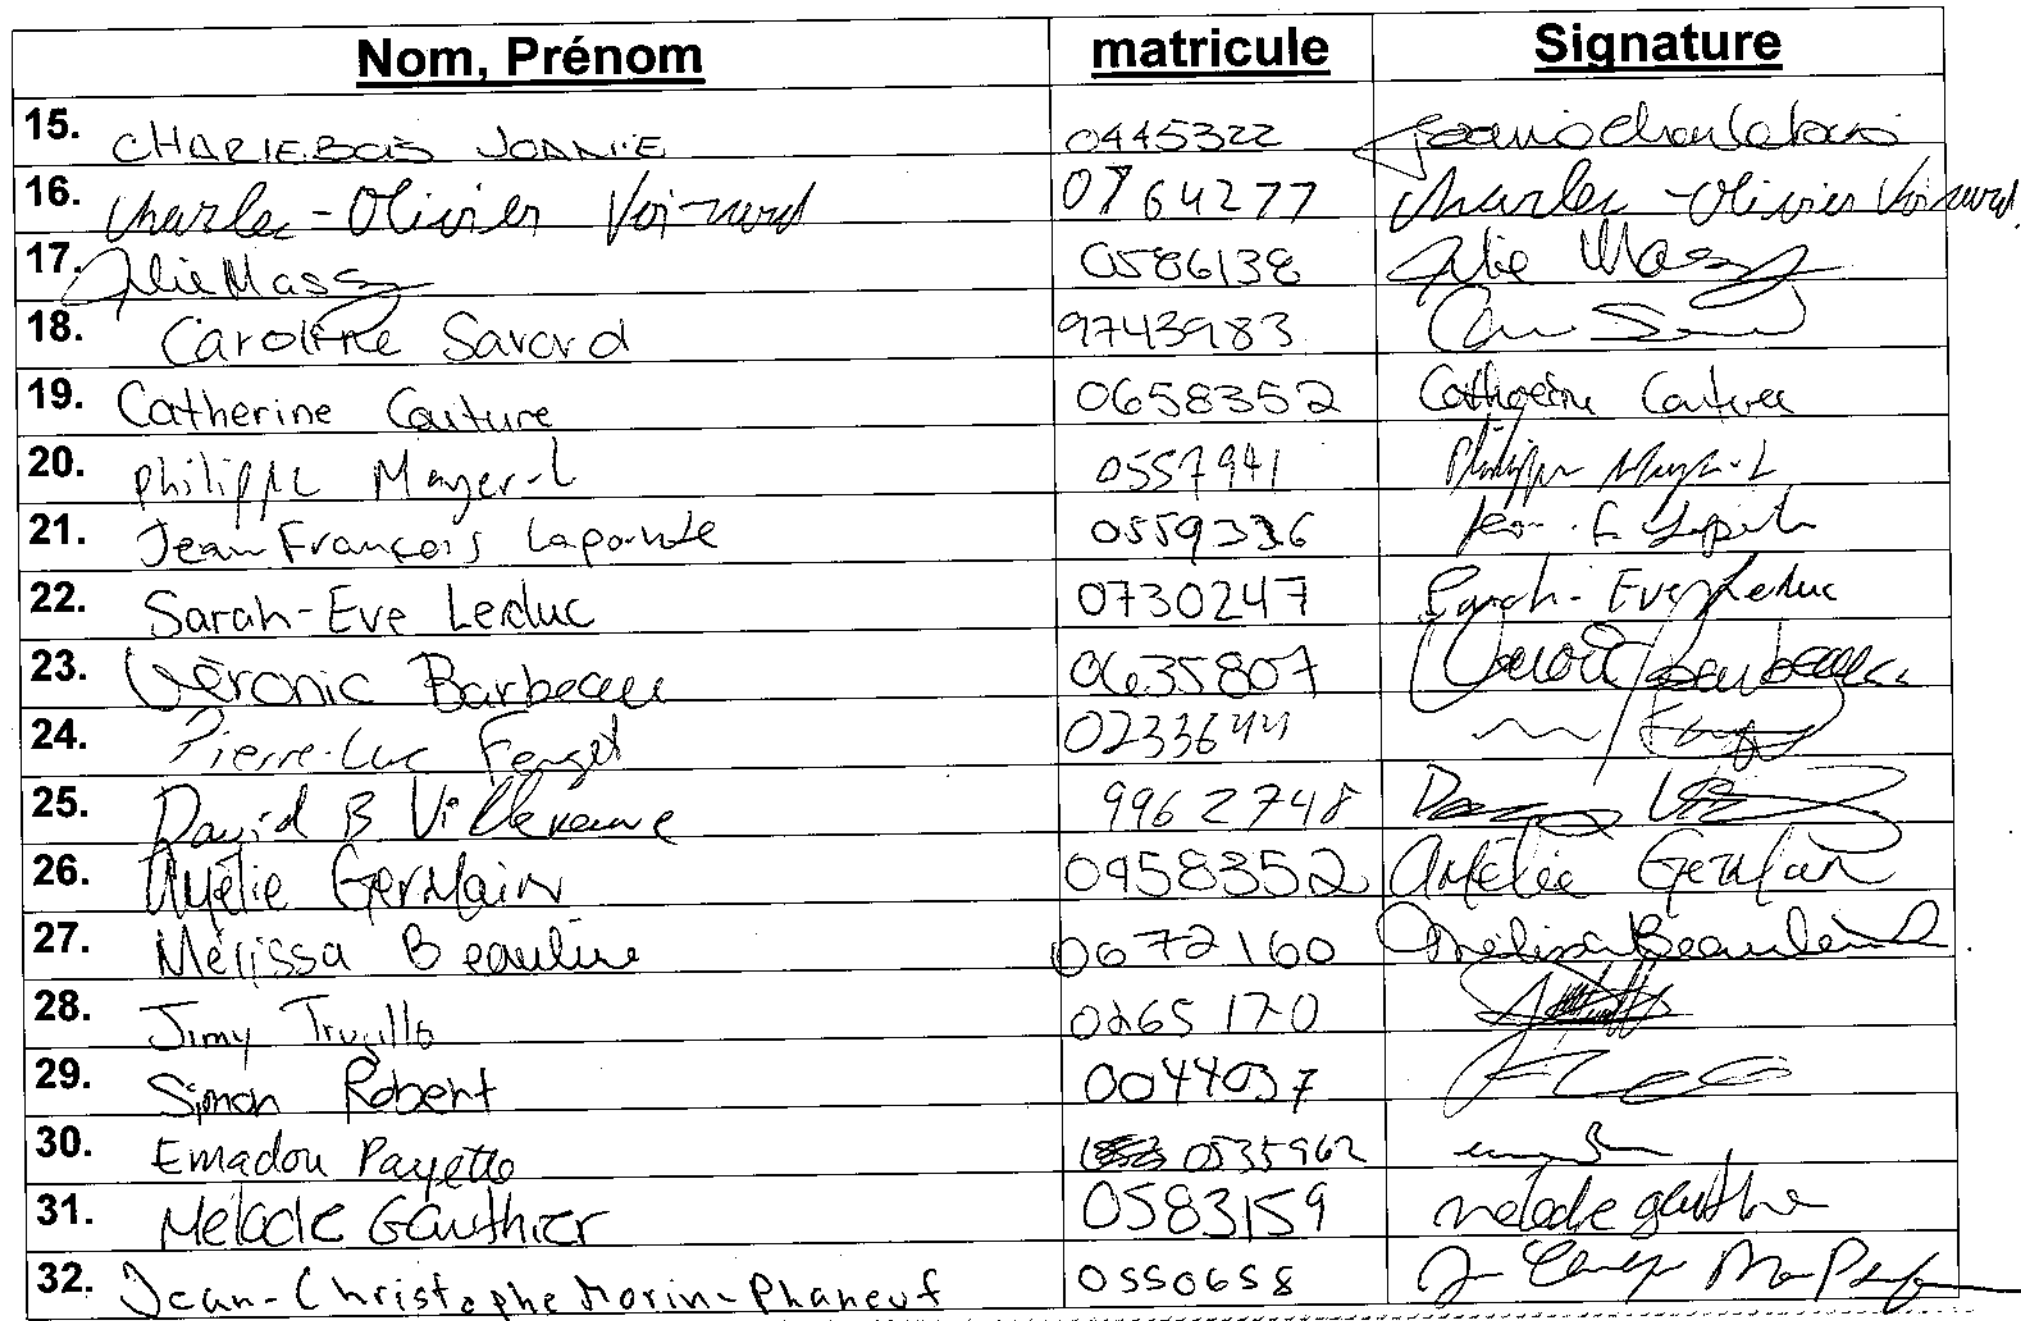 Nom, Prénom matricule Signature
15. CHARLEBOIS JOANIE 0445322 Joanie Charlebois
16. Charles-Olivier Voinard 0764277 Charles-Olivier Voinard
17. Julie Massy 0586138 Julie Massy
18. Caroline Savard 9743983
19. Catherine Couture 0658352 Catherine Couture
20. Philippe Mayer-L 0557941 Philippe Mayer-L
21. Jean François Lapointe 0559336
22. Sarah-Eve Leduc 0730247 Sarah-Eve Leduc
23. Véronic Barbeau 0635807 Véronic Barbeau
24. Pierre-Luc 0233644
25. David B Villeneuve 9962748
26. Amélie Germain 0958352 Amélie Germain
27. Mélissa Beaulieu 0672160 Mélissa Beaulieu
28. Jimy Trujillo 0265170
29. Simon Robert 0044037
30. Emadou Payette 0535962
31. Mélodie Gauthier 0583159 mélodie gauthier
32. Jean-Christophe Morin-Phaneuf 0550658